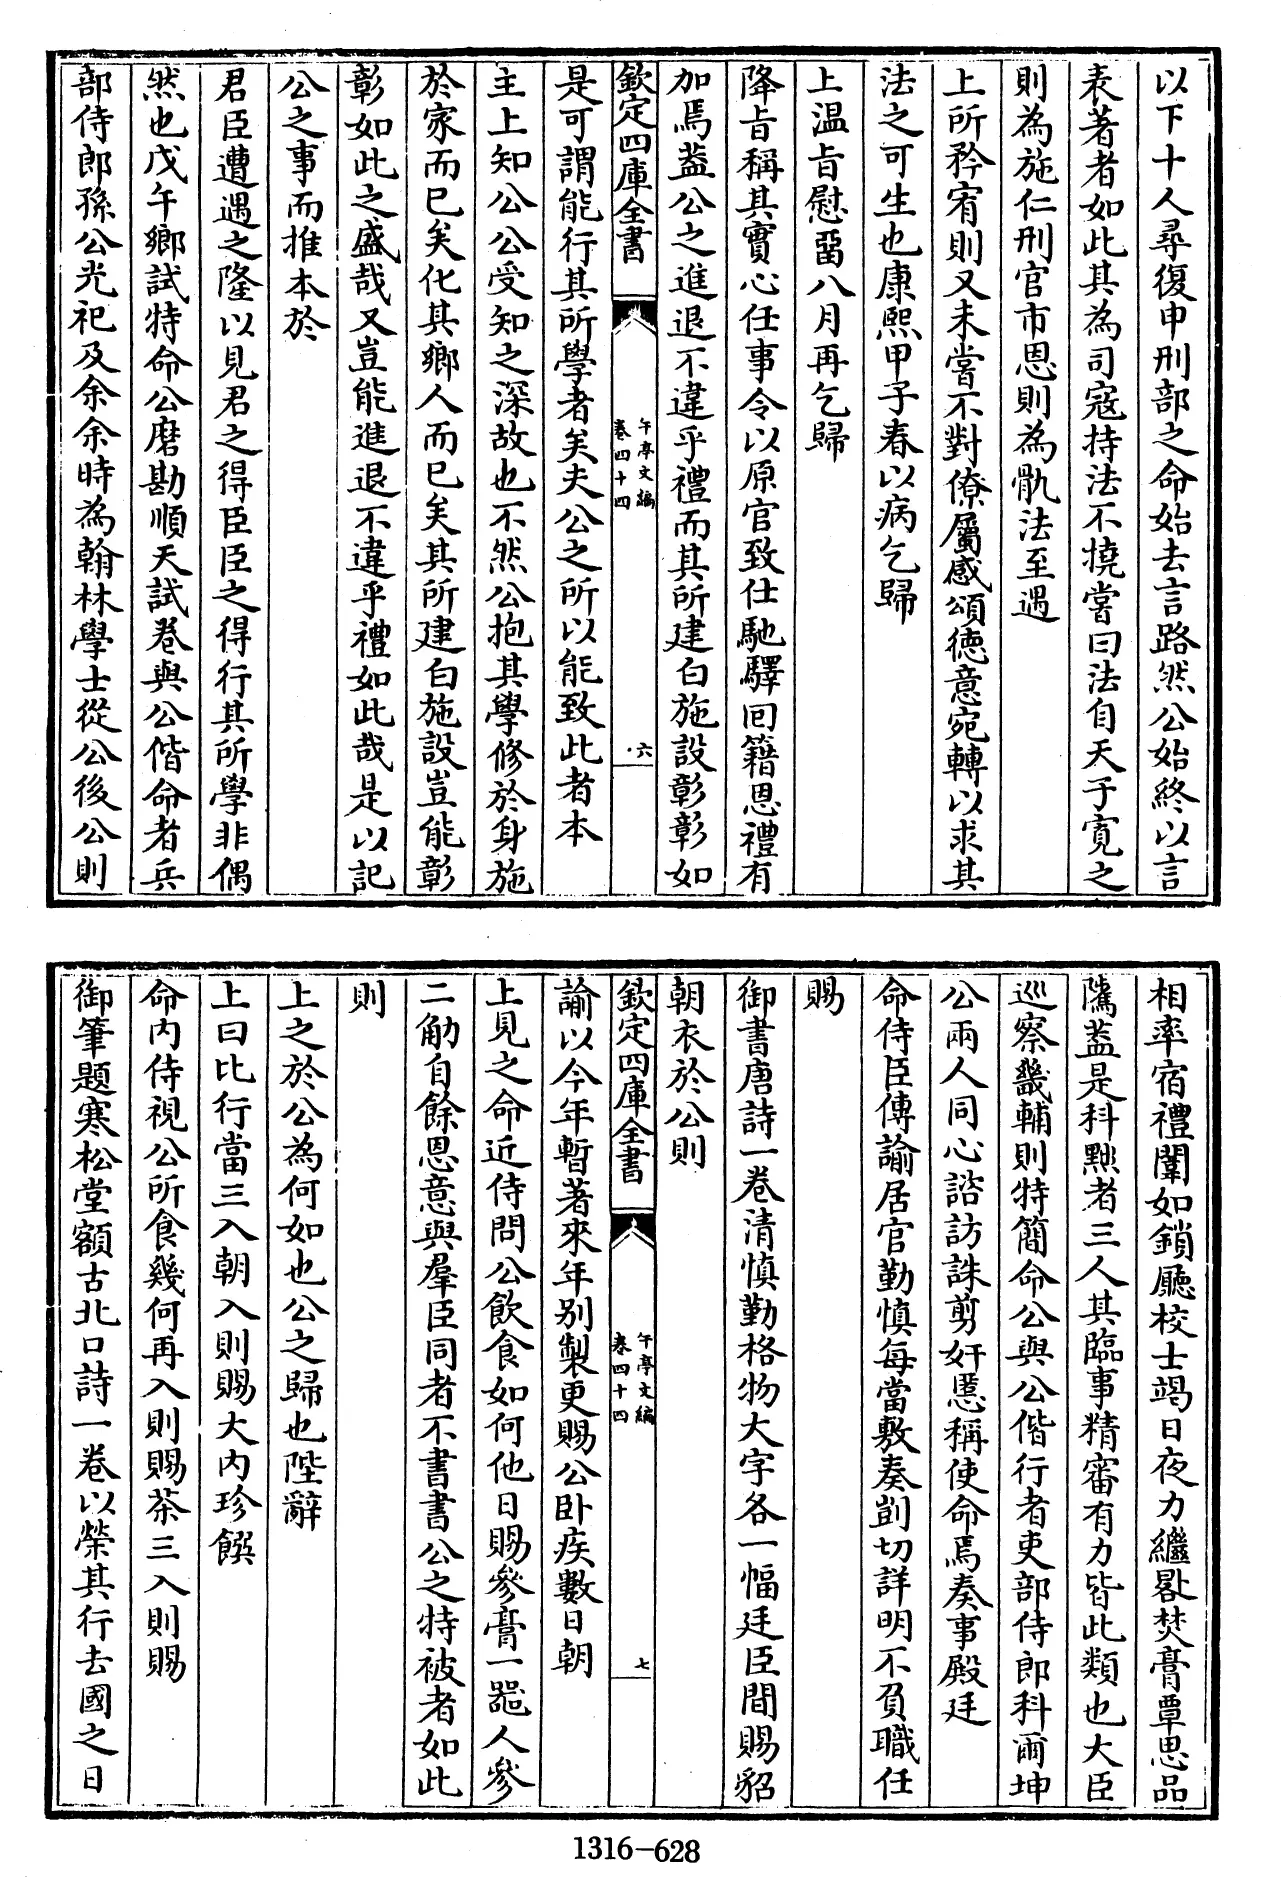 以下十人尋復申刑部之命始去言路然公始終以言
表著者如此其為司寇持法不撓嘗曰法自天子寬之
則為施仁刑官市恩則為骫法至遇
上所矜宥則又未嘗不對僚屬感頌德意宛轉以求其
法之可生也康熙甲子春以病乞歸
上温㫖慰畱八月再乞歸
降㫖稱其實心任事令以原官致仕馳驛囘籍恩禮有
加焉葢公之進退不違乎禮而其所建白施設彰彰如
欽定四庫全書
午亭文編
卷四十四
六
是可謂能行其所學者矣夫公之所以能致此者本
主上知公公受知之深故也不然公抱其學修於身施
於家而已矣化其鄉人而已矣其所建白施設豈能彰
彰如此之盛哉又豈能進退不違乎禮如此哉是以記
公之事而推本於
君臣遭遇之隆以見君之得臣臣之得行其所學非偶
然也戊午鄉試特命公磨勘順天試卷與公偕命者兵
部侍郎孫公光祀及余余時為翰林學士從公後公則
相率宿禮闈如鎖廳校士竭日夜力繼晷焚膏覃思品
隲葢是科㸃者三人其臨事精審有力皆此類也大臣
巡察畿輔則特簡命公與公偕行者吏部侍郎科爾坤
公兩人同心諮訪誅剪奸慝稱使命焉奏事殿廷
命侍臣傳諭居官勤慎每當敷奏剴切詳明不負職任
賜
御書唐詩一卷清慎勤格物大字各一幅廷臣間賜貂
朝衣於公則
欽定四庫全書
午亭文編
卷四十四
七
諭以今年暫著來年别製更賜公卧疾數日朝
上見之命近侍問公飲食如何他日賜參膏一器人參
二觔自餘恩意與羣臣同者不書書公之特被者如此
則
上之於公為何如也公之歸也陛辭
上曰比行當三入朝入則賜大内珍饌
命内侍視公所食幾何再入則賜茶三入則賜
御筆題寒松堂額古北口詩一卷以榮其行去國之日
1316-628